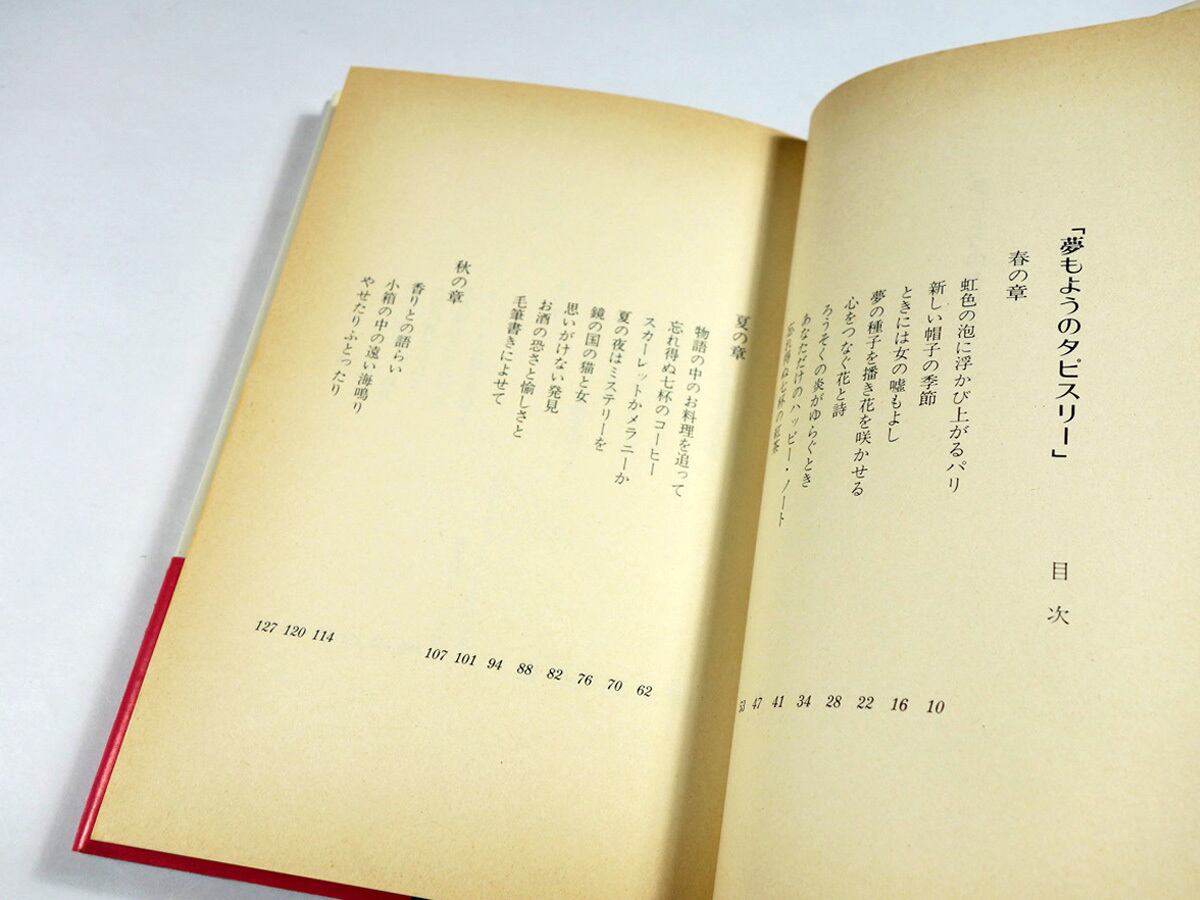 「夢もようのタピスリー」　目次
春の章
虹色の泡に浮かび上がるパリ 10
新しい帽子の季節 16
ときには女の嘘もよし 22
夢の種子を播き花を咲かせる 28
心をつなぐ花と詩 34
ろうそくの炎がゆらぐとき 41
あなただけのハッピー・ノート 47
忘れ得ぬ七杯の紅茶 53
夏の章
物語の中のお料理を追って 62
忘れ得ぬ七杯のコーヒー 70
スカーレットかメラニーか 76
夏の夜はミステリーを 82
鏡の国の猫と女 88
思いがけない発見 94
お酒の恐さと愉しさと 101
毛筆書きによせて 107
秋の章
香りとの語らい 114
小箱の中の遠い海鳴り 120
やせたりふとったり 127